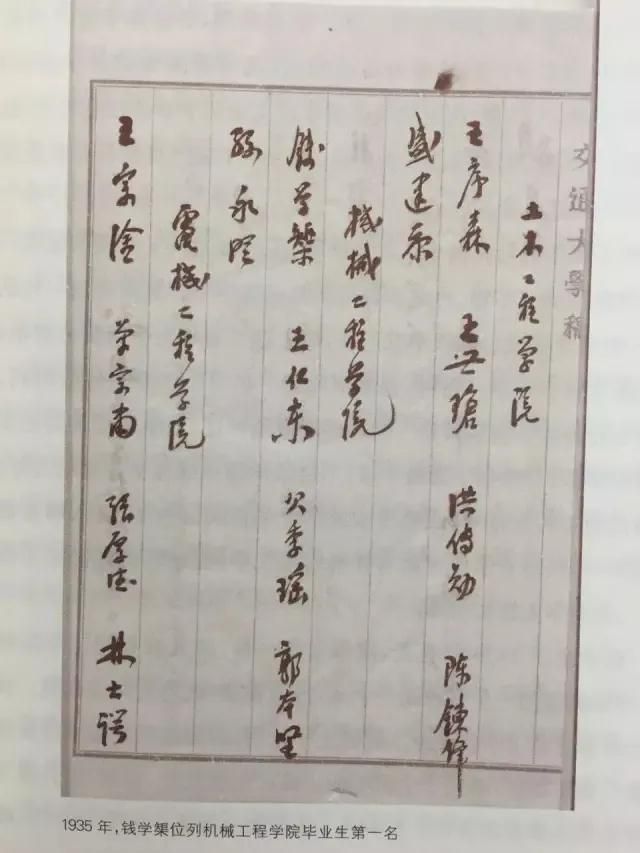 交通大學稿
土木工程学院
王序森 王世瑲 洪传勋 陈鍊锋
盛建康
机械工程学院
錢学榘 王仁东 季瑶 郭本坚
孙永
電機工程学院
王宗淦 宗南 张厚 林士谔
1935 年，钱学榘位列机械工程学院毕业生第一名